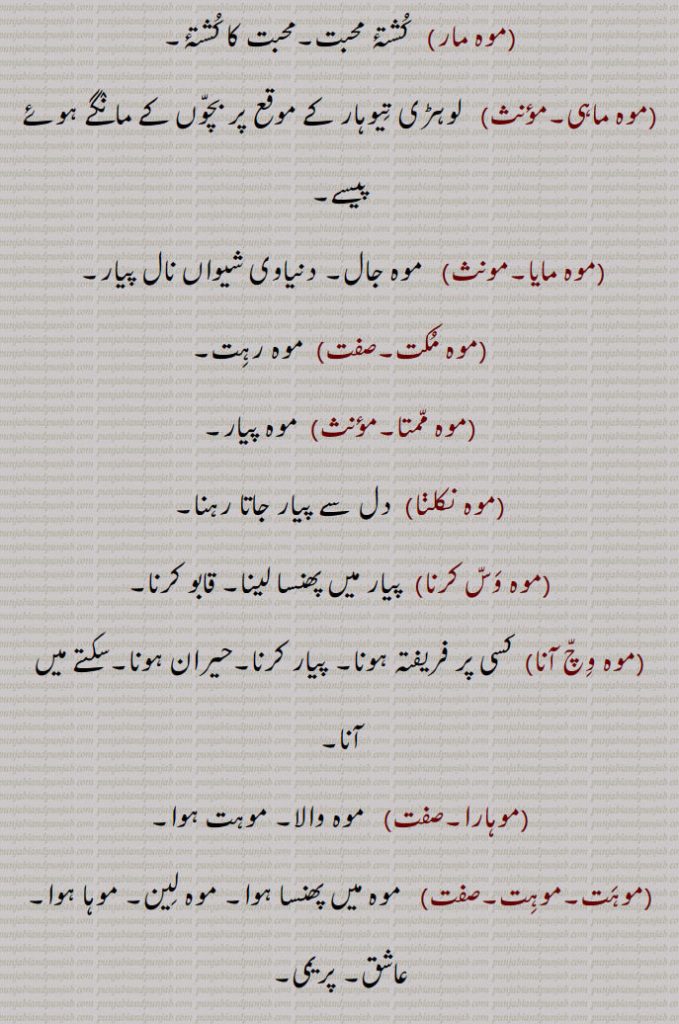 (موہ مار) کُشتۂ محبت۔محبت کا کُشتۂ۔
(موہ ماہی۔مؤنث) لوہڑی تِیوہار کے موقع پر بچّوں کے مانگے ہوئے
پیسے۔
(موہ مایا۔مونث) موہ جال۔ دنیاوی شیواں نال پیار۔
(موہ مُکت۔صفت) موہ رہِت۔
(موہ مّمتا۔مؤنث) موہ پیار۔
(موہ نکلݨا) دل سے پیار جاتا رہنا۔
(موہ وَسّ کرنا) پیار میں پھنسا لینا۔ قابو کرنا۔
(موہ وِچّ آنا) کسی پر فریفتہ ہونا۔ پیار کرنا۔حیران ہونا۔سکتے میں
آنا۔
(موہارا۔صفت) موہ والا۔ موہت ہوا۔
(موہَت۔موہِت۔صفت) موہ میں پھنسا ہوا۔ موہ لِین۔ موہا ہوا۔
عاشق۔ پریمی۔